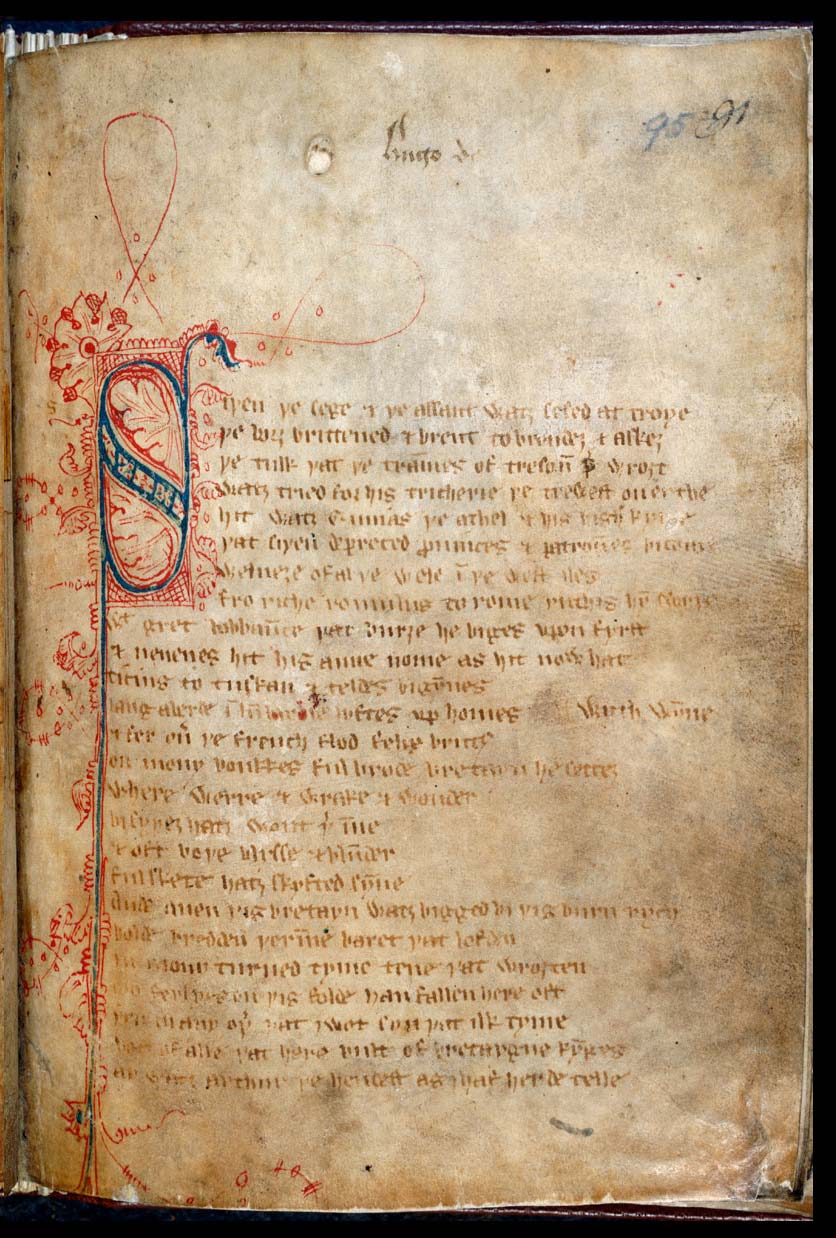 Hugo de
95 91
Siþen þe sege & þe assaut watz sesed at troye
þe borȝ brittened & brent to brondeȝ & askez
þe tulk þat þe trāmes of tresoū þ̉ wroȝt
watz tried for his tricherie þe trewest on erthe
hit watz Ennias þe athel & his highe kynde
þat siþen depreced ꝓuinces & patroūes bicome
welneȝe of al þe wele ī þe west iles
fro riche romulus to rome ricchis hȳ swyþe
wt gret bobbaūce þat burȝe he biges vpon fyrst
& neuenes hit his aune nome as hit now hat
ticius to tuskan & teldes bigȳnes
langaberde ī lūbardie lyftes vp homes with wȳne
& fer oủ þe french flod felix brutꝰ
on mony bonkkes ful brode bretayn he settez
where werre & wrake & wonder
bi syþez hatz wont þ̉ īne
& oft boþe blysse & blūder
ful skete hatz skyfted sȳne
Ande quen þis bretayn watz bigged bi þis burn rych
bolde bredden þerīne baret þat lofden
in mony turned tyme tene þat wroȝten
mo ferlyes on þis folde han fallen here oft
þen in any oþ̉ þat I wot syn þat ilk tyme
bot of alle þat here bult of bretaygne kȳges
ay watz arthur þe hendest as I haf herde telle